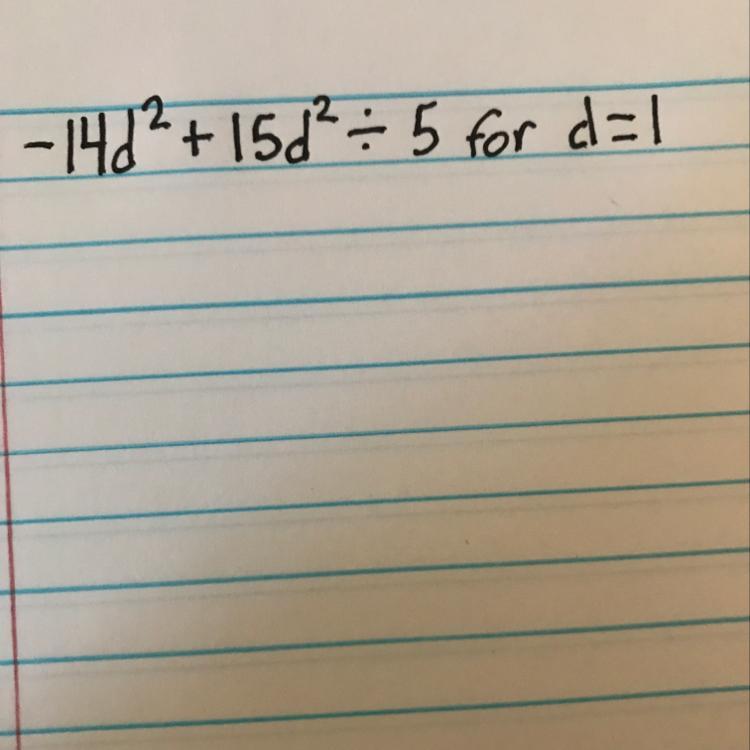 -14d² + 15d² ÷ 5 for d=1